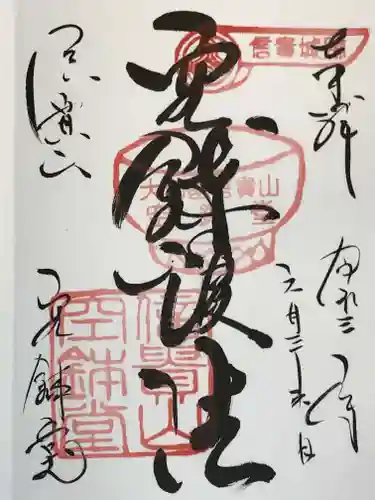 奉拝
令和三年
空鉢護法
信貴山
空鉢堂
信貴城址
信貴山
空鉢堂